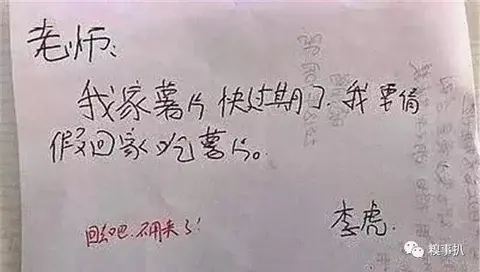 老师:
我家薯片快过期了,我要请
假回家吃薯片。
李虎.
回去吧,不用来了!
糗事扒